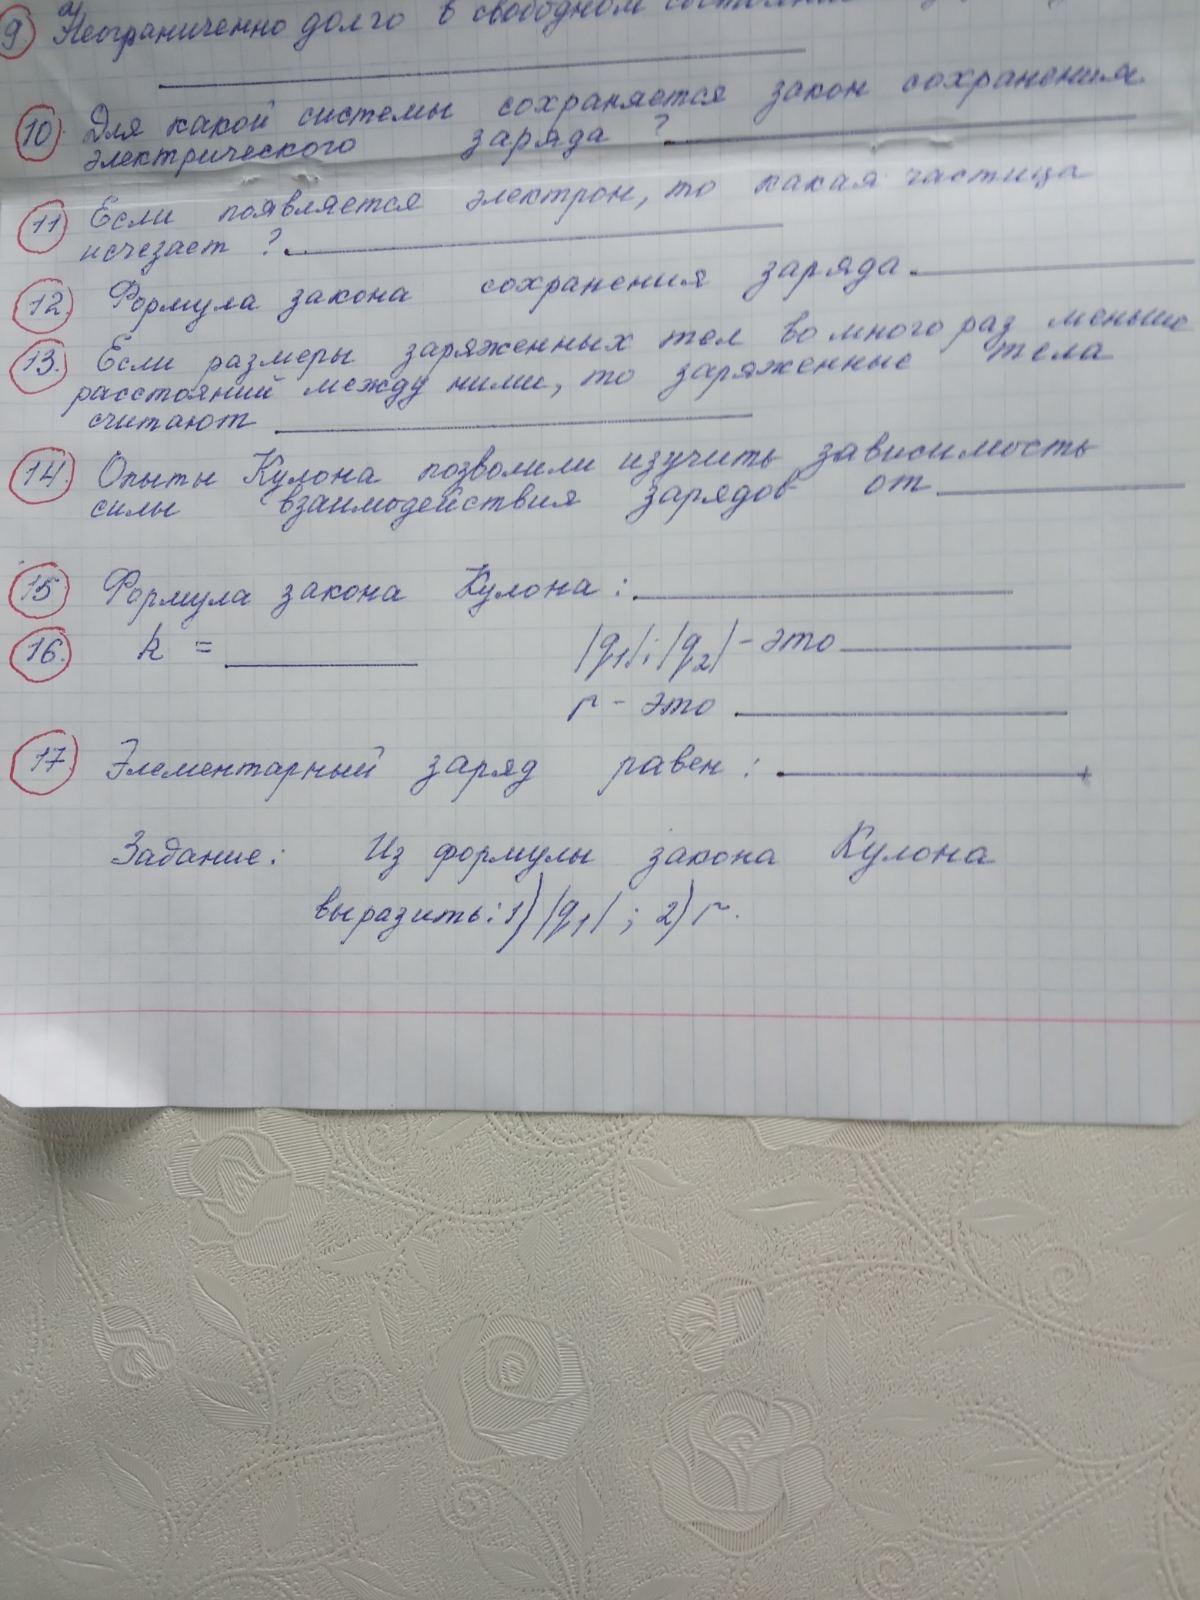 9. Неограниченно долго в свободном
10. Для какой системы сохраняется закон сохранения
электрического заряда ?
11. Если появляется электрон, то какая частица
исчезает ?
12. Формула закона сохранения заряда
13. Если размеры заряженных тел во много раз меньше
расстояний между ними, то заряженные тела
считают
14. Опыты Кулона позволили изучить зависимость
силы взаимодействия зарядов от
15. Формула закона Кулона :
16. k = |q1|; |q2| - это
r - это
17. Элементарный заряд равен :
Задание: Из формулы закона Кулона
выразить: 1) |q1| ; 2) r.